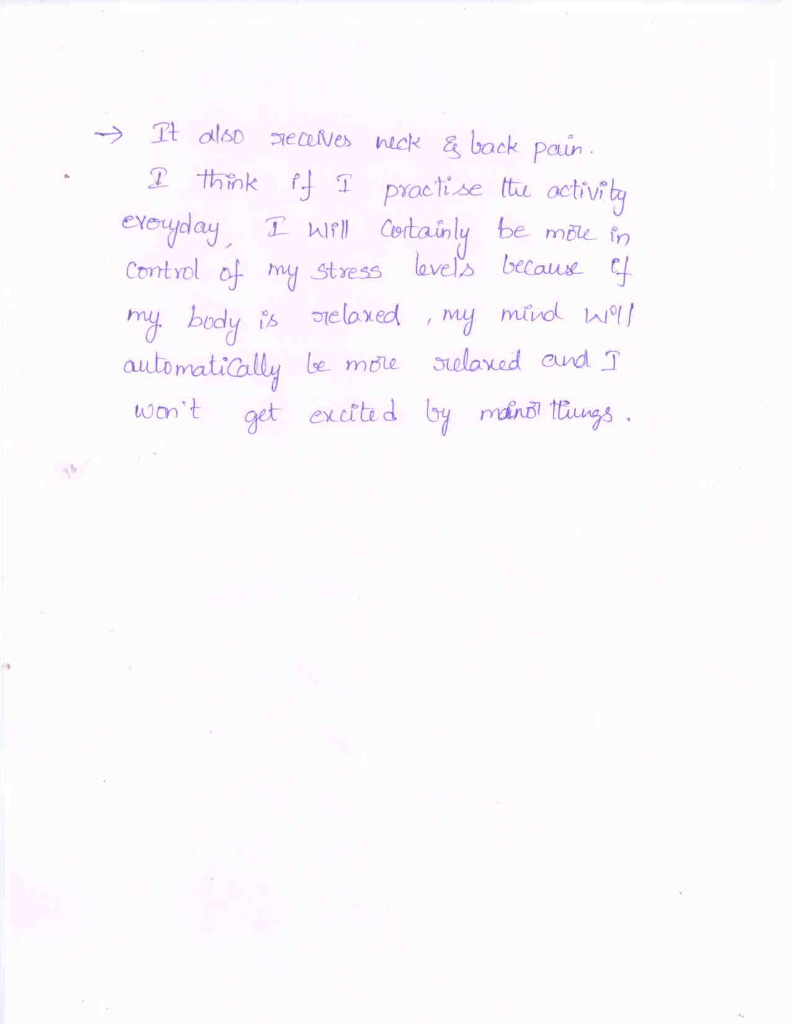 → It also receives neck & back pain.
I think if I practise the activity
everyday, I will certainly be more in
control of my stress levels because if
my body is relaxed, my mind will
automatically be more relaxed and I
won't get excited by minor things.